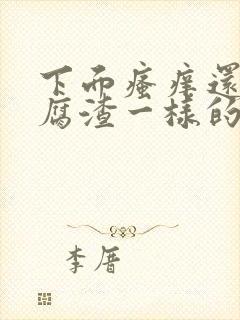 下面瘙痒還
腐渣一樣的
李厝